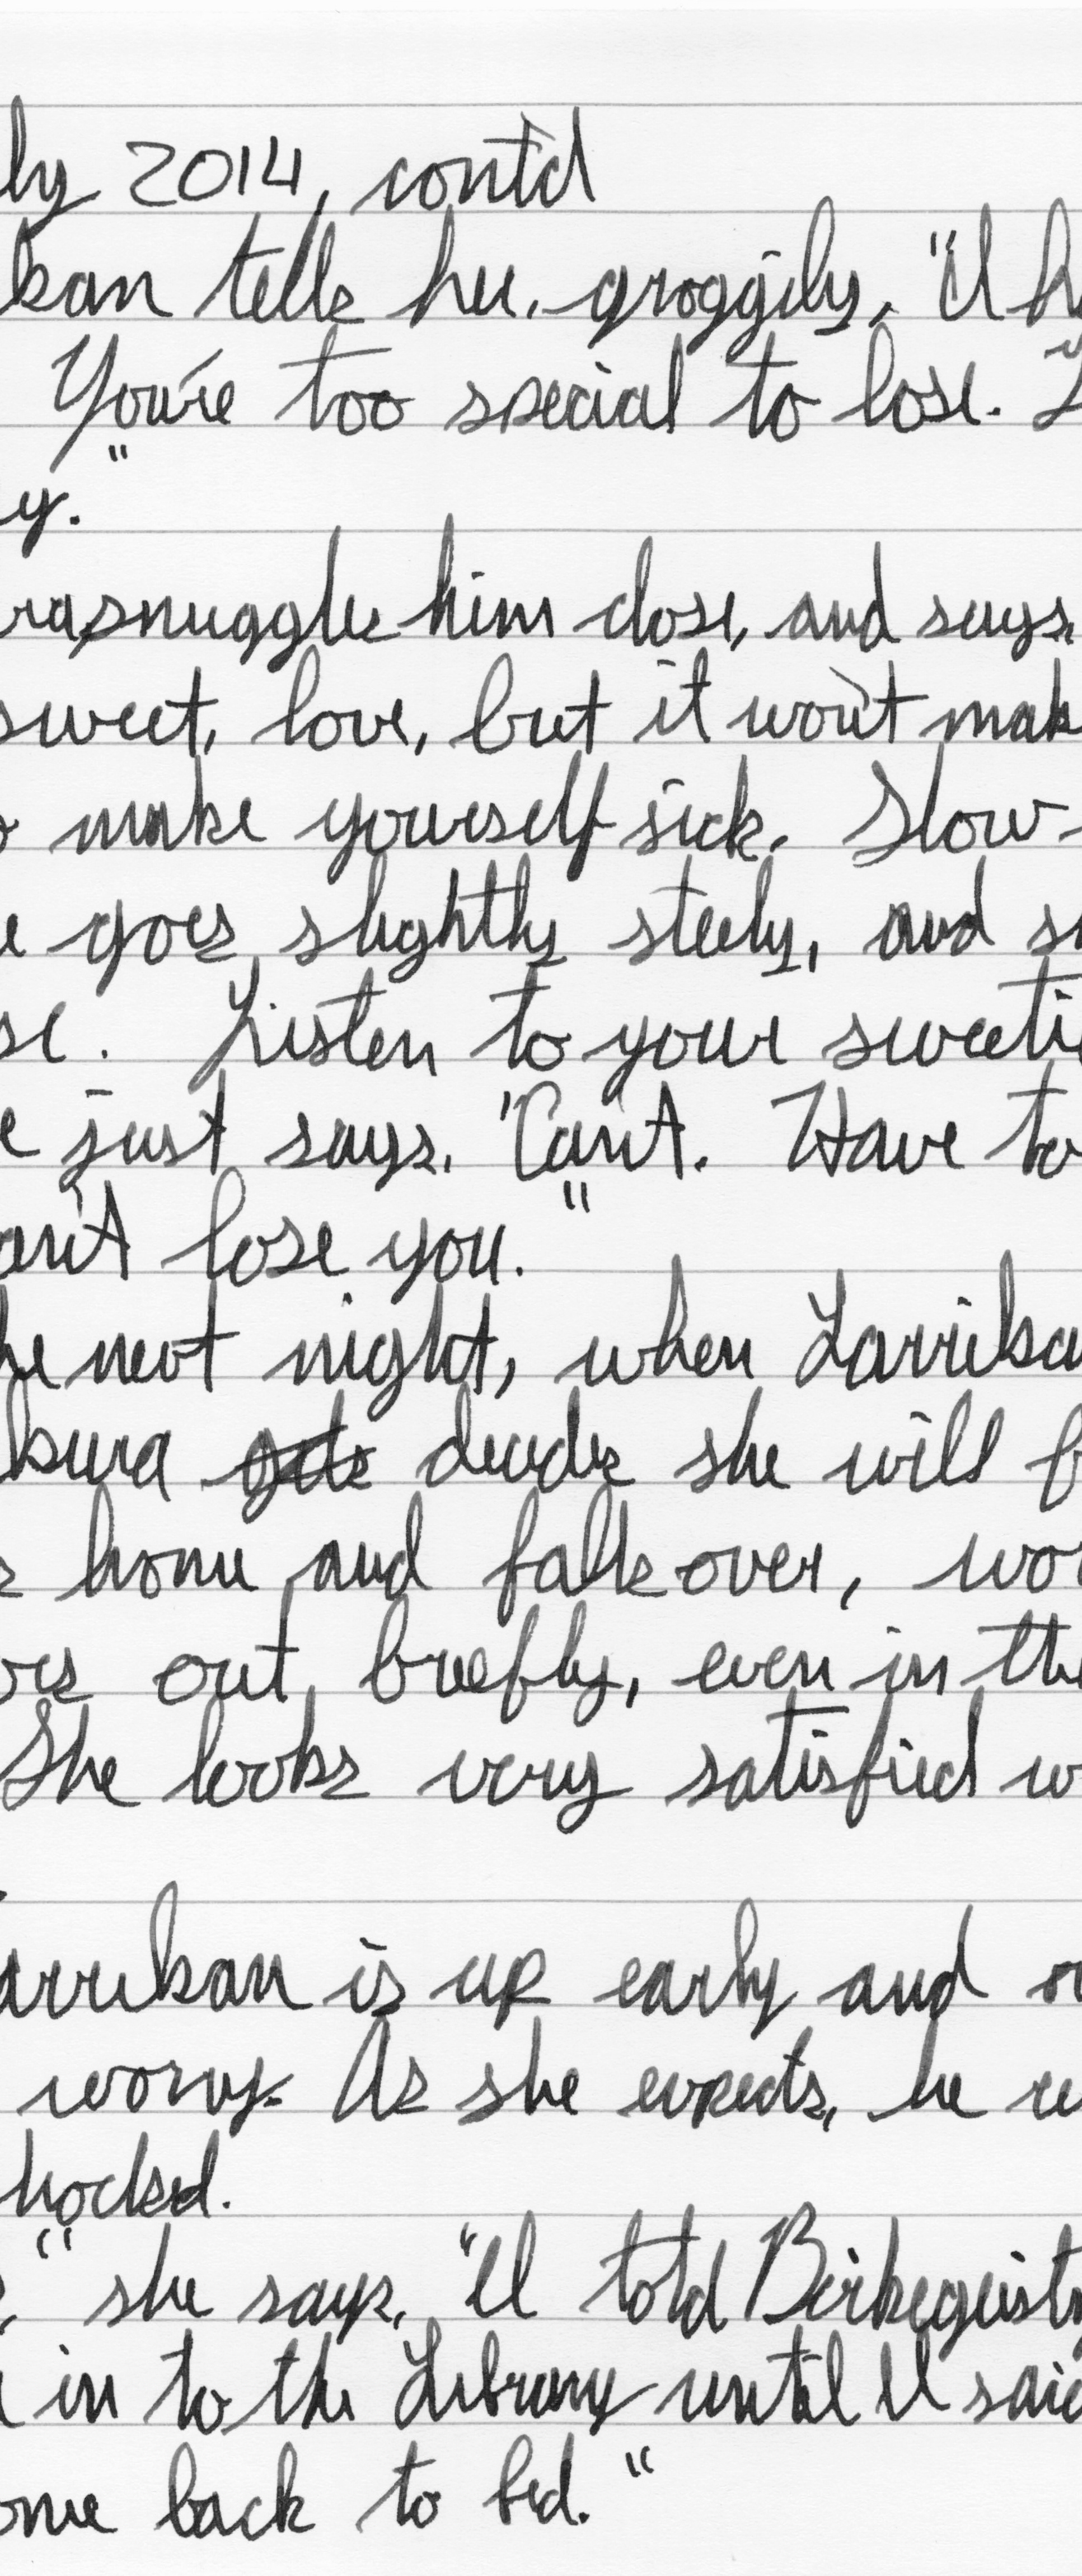 ly 2014, cont'd
kan tells her, groggily, "I h
You're too special to lose.
y."
ra snuggles him close, and says,
sweet, love, but it won't mak
o make yourself sick. Slow
e goes slightly steely, and s
se. Listen to your sweeti
e just says, "Can't. Have to
an't lose you."
he next night, when Larrikan
kura decides she will f
s home and falls over, wor
ors out, briefly, even in the
She looks very satisfied w
arrikan is up early and o
worry. As she expects, he re
hocked.
," she says, "I told Birkegeist
in to the Library until I said
ome back to bed."